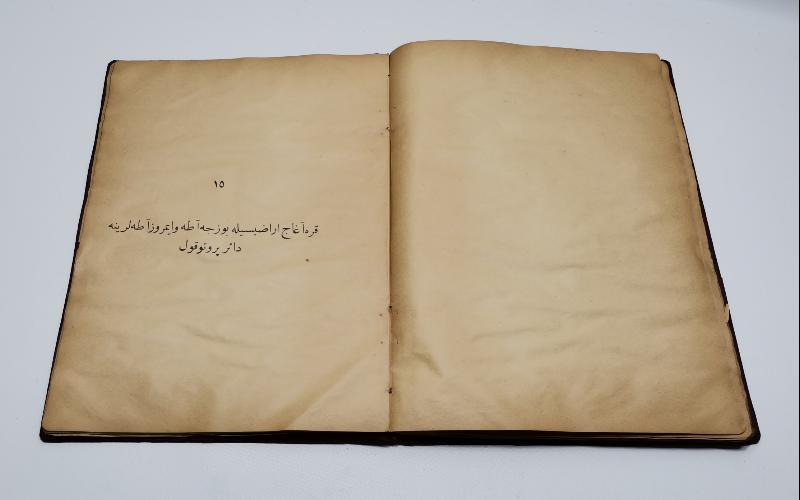 ١٥
قره‌آغاج اراضیسیله بوزجه‌آطه وایمروزآطه‌لرینه
دائر پروتوقول